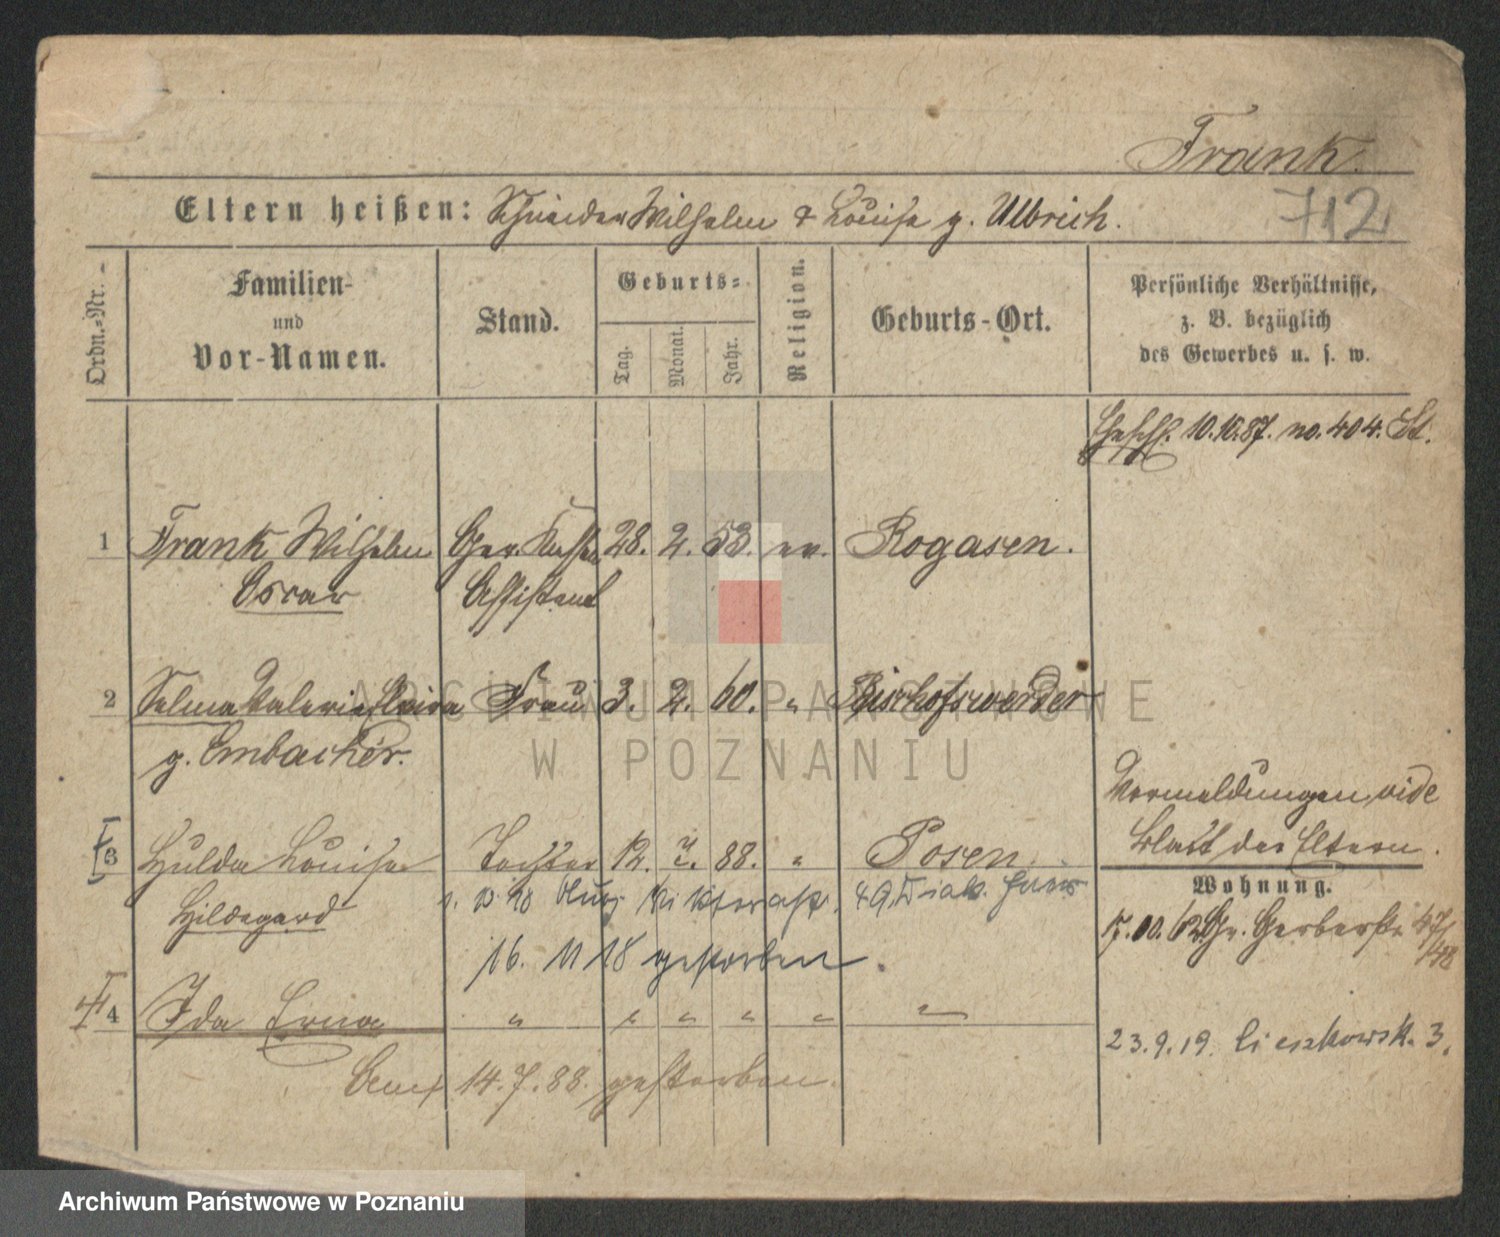 Frank.
712
Eltern heißen: Schneider Wilhelm & Louise g. Ulbrich.
Ordn.-Nr.
Familien-
und
Vor-Namen.
Stand.
Geburts-
Tag.
Monat.
Jahr.
Religion.
Geburts-Ort.
Persönliche Verhältnisse,
z. B. bezüglich
des Gewerbes u. s. w.
10.10.87. no. 404. St.
1 Frank Wilhelm Ger. Kassen 28. 2. 53. ev. Rogasen.
Oscar Assistent
2 Selma Valerie Elvira Frau 3. 2. 60. " Bischofswerder
g. Embacher.
Vermeldungen vide
Blatt der Eltern.
3 Hulda Louise Tochter 12. 7. 88. " Posen.
Hildegard
49 Diak. Haus
Wohnung.
Gr. Gerberstr. 47/48
16. 11 18 gestorben.
4 Ida Erna " " " " " "
23.9.19. Cieszkowsk. 3.
14.7.88. gestorben.
ARCHIWUM PAŃSTWOWE
W POZNANIU
Archiwum Państwowe w Poznaniu